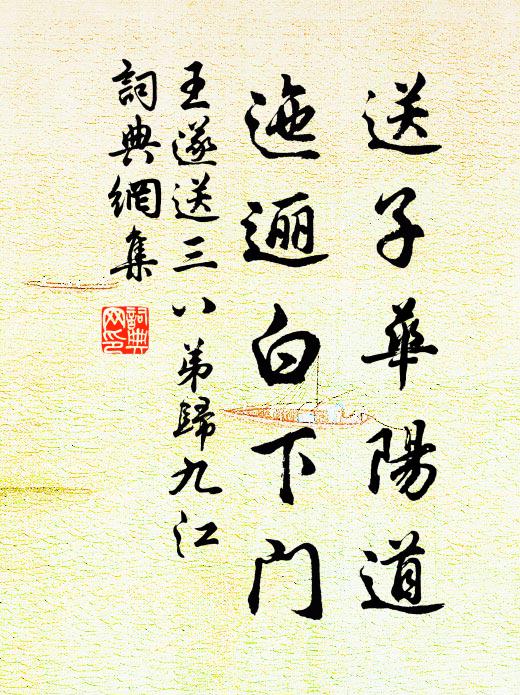 送子華陽道
迤逦白下門
王遂送三八弟歸九江
詞典網集
詞典網印